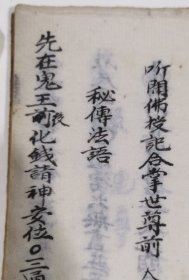 听開佛授記合掌世尊前
秘傳法語
先在鬼王前化錢請神安位〇三通